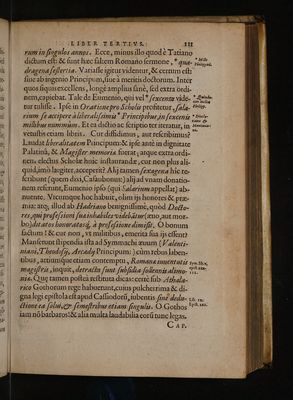 LIBER TERTIVS. 111
rum in singulos annos. Ecce, minus illo quod è Tatiano
dictum est: & sunt hæc saltem Romano sermone, * qua-
dragena sestertia. Variasse igitur videntur, & certùm est:
siue ab ingenio Principum, siue à meritis doctorum. Inter
quos siquis excellens, longè amplius sanè, sed extra ordi-
nem, capiebat. Tale de Eumenio, qui vel * sexcenta vide-
tur tulisse. Ipse in Oratione pro Scholis profitetur, sala-
rium se accipere à liberalissimis Principibus, in sexcenis
millibus nummûm. Et ea dictio ac scriptio ter iteratur, in
vetustis etiam libris. Cur diffidimus, aut rescribimus?
Laudat liberalitatem Principum: & ipse antè in dignitate
Palatina, & Magister memoriæ fuerat, atque extra ordi-
nem electus Scholæ huic instaurandæ, cur non plus ali-
quid, imò largiter, acceperit? Alij tamen sexagena hîc re-
scribunt (quem dios, Casaubonus:) alij ad vnam donatio-
nem referunt, Eumenio ipso (qui Salarium appellat) ab-
nuente. Vtcumque hoc habuit, olim ijs honores & præ-
mia: atq; illud ab Hadriano benignissimè, quòd Docto-
res, qui professioni suæ inhabiles videbātur (æuo, aut mor-
bo) ditatos honoratosq́, à professione dimisit. O bonum
factum! & cur non, vt militibus, emerita sua ijs essent?
Manserunt stipendia ista ad Symmachi æuum (Valenti-
niani, Theodosij, Arcadij Principum:) cùm rebus laben-
tibus, artiúmque etiam contemptu, Romanæ iuuentutis
magistris, inquit, detracta sunt subsidia sollennis alimo-
niæ. Quę tamen posteà restituta dicas: certè sub Athala-
rico Gothorum rege habuerunt, cuius pulcherrima & di-
gna legi epistola est apud Cassiodorū, iubentis sine dedu-
ctione ea solui, & semestribus etiam singulis. O Gothos
iam nō barbaros! & alia multa laudabilia eorū tunc legas.
CAP.